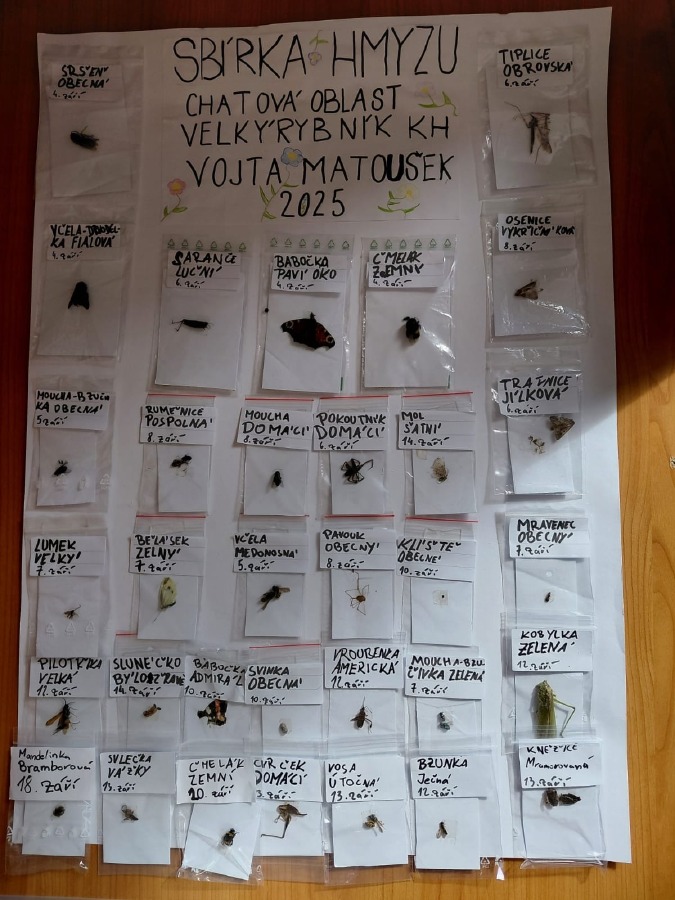 SBÍRKA HMYZU
CHATOVÁ OBLAST
VELKÝ RYBNÍK KH
VOJTA MATOUŠEK
2025
SRŠEŇ
OBECNÁ
4. září
TIPLICE
OBROVSKÁ
6. září
VČELA-DRVODĚL-
KA FIALOVÁ
4. září
SARANČE
LUČNÍ
6. září
BABOČKA
PAVÍ OKO
4. září
ČMELÁK
ZEMNÝ
4. září
OSENICE
VYKŘIČNÍKOVÁ
8. září
MOUCHA-BZUČI-
KA OBECNÁ
5. září
RUMĚNICE
POSPOLNÁ
8. září
MOUCHA
DOMÁCÍ
8. září
POKOUTNÍK
DOMÁCÍ
6. září
MOL
ŠATNÍ
14. září
TRAVNICE
JÍLKOVÁ
6. září
LUMEK
VELKÝ
7. září
BĚLÁSEK
ZELNÝ
7. září
VČELA
MEDONOSNÁ
5. září
PAVOUK
OBECNÝ
8. září
KLÍŠTĚ
OBECNÉ
10. září
MRAVENEC
OBECNÝ
7. září
PILOTKA
VELKÁ
11. září
SLUNÉČKO
14. září
BABOČKA
ADMIRÁL
10. září
SVINKA
OBECNÁ
10. září
VROUBENKA
AMERICKÁ
12. září
MOUCHA-BZU-
ČIVKA ZELENÁ
7. září
KOBYLKA
ZELENÁ
12. září
Mandelinka
Bramborová
18. září
SVLEČKA
VÁŽKY
13. září
ČMELÁK
ZEMNÍ
20. září
CVRČEK
DOMÁCÍ
3. září
VOSA
ÚTOČNÁ
13. září
BZUNKA
Ječná
12 září
KNĚŽICE
Mramorovaná
13. září